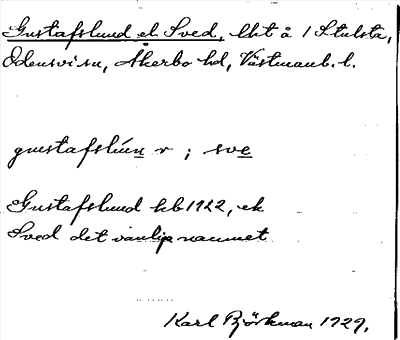 Gustafslund el Sved, lht å 1 Stulsta,
Odensvi sn, Åkerbo hd, Västmanl. l.
gustafslún r ; sve
Gustafslund kb 1922, ek
Sved det vanliga namnet
Karl Björkman 1929.